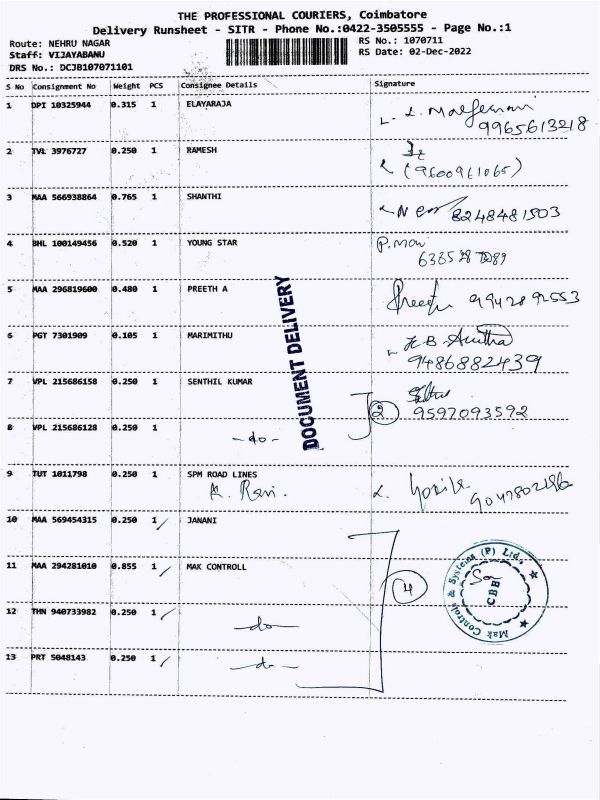 THE PROFESSIONAL COURIERS, Coimbatore
Delivery Runsheet - SITR - Phone No.:0422-3505555 - Page No.:1
Route: NEHRU NAGAR
RS No.: 1070711
Staff: VIJAYABANU
RS Date: 02-Dec-2022
DRS No.: DCJB107071101
S No Consignment No Weight PCS Consignee Details Signature
1 DPI 10325944 0.315 1 ELAYARAJA
9965613218
2 TVL 3976727 0.250 1 RAMESH
(9600961065)
3 MAA 566938864 0.765 1 SHANTHI
8248481503
4 BHL 100149456 0.520 1 YOUNG STAR
5 MAA 296819600 0.480 1 PREETH A
Preethi 9942892553
6 PGT 7301909 0.105 1 MARIMITHU
9486882439
7 VPL 215686158 0.250 1 SENTHIL KUMAR
2 9597093592
8 VPL 215686128 0.250 1
-do-
DOCUMENT DELIVERY
9 TUT 1011798 0.250 1 SPM ROAD LINES
K. Ravi.
10 MAA 569454315 0.250 1 JANANI
11 MAA 294281010 0.855 1 MAK CONTROLL
4
Mak Controls & Systems (P) Ltd.,
CBE
12 THN 940733982 0.250 1
-do-
13 PRT 5048143 0.250 1
-do-